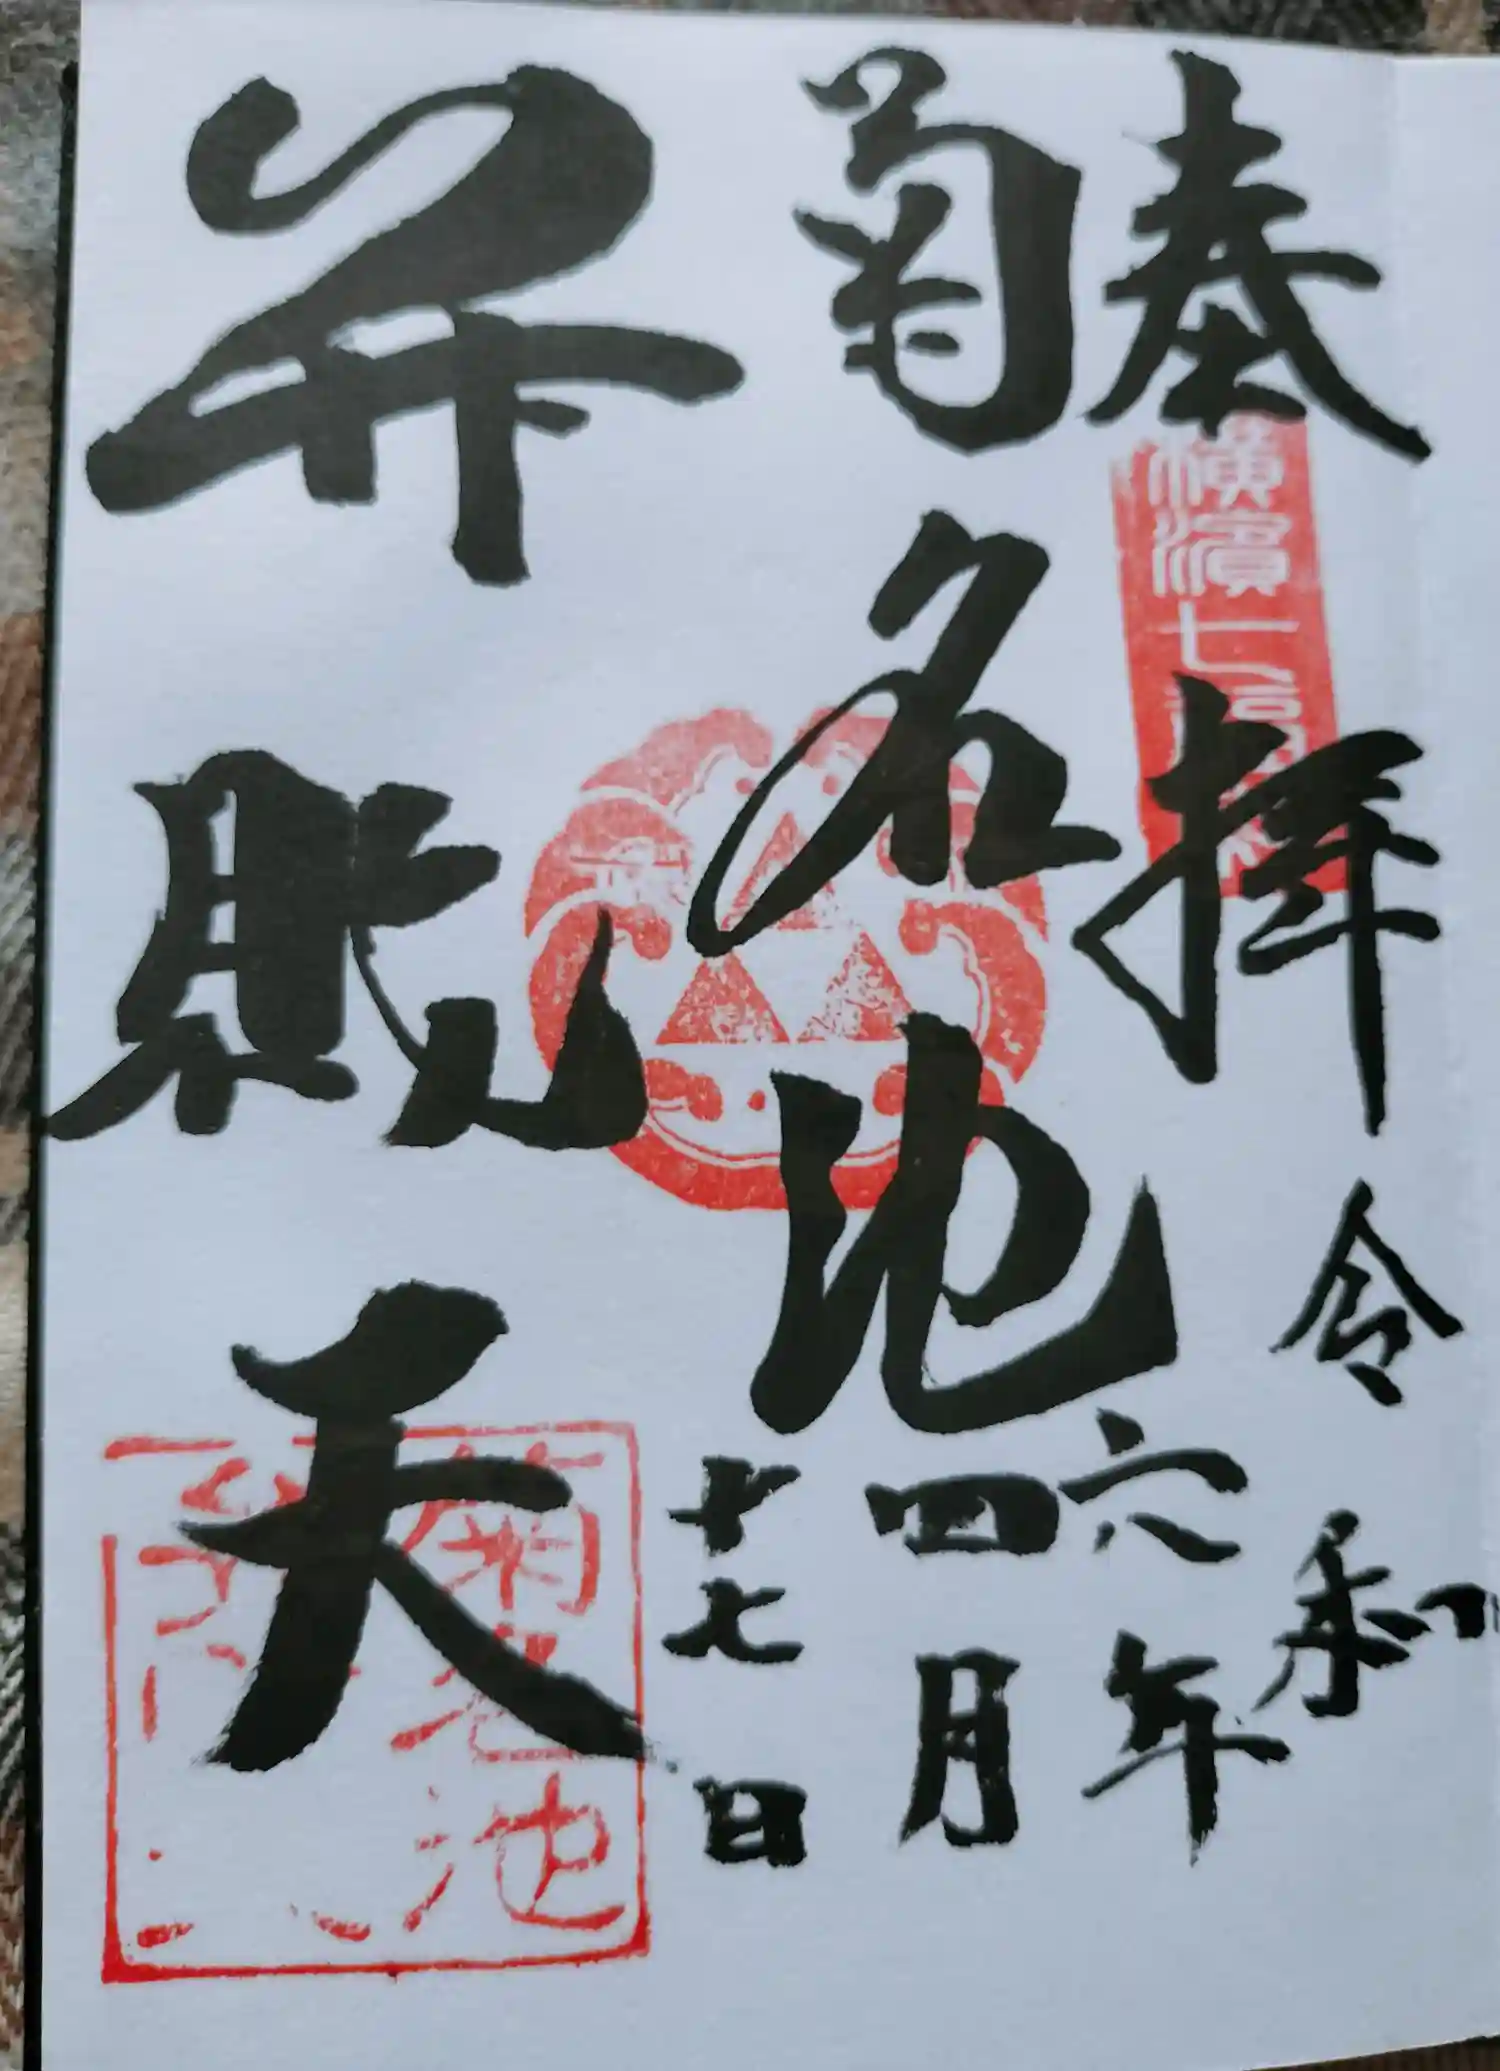 奉拝
横濱七福神
令和
六年
菊名池
四月
十七日
弁財天
菊名池